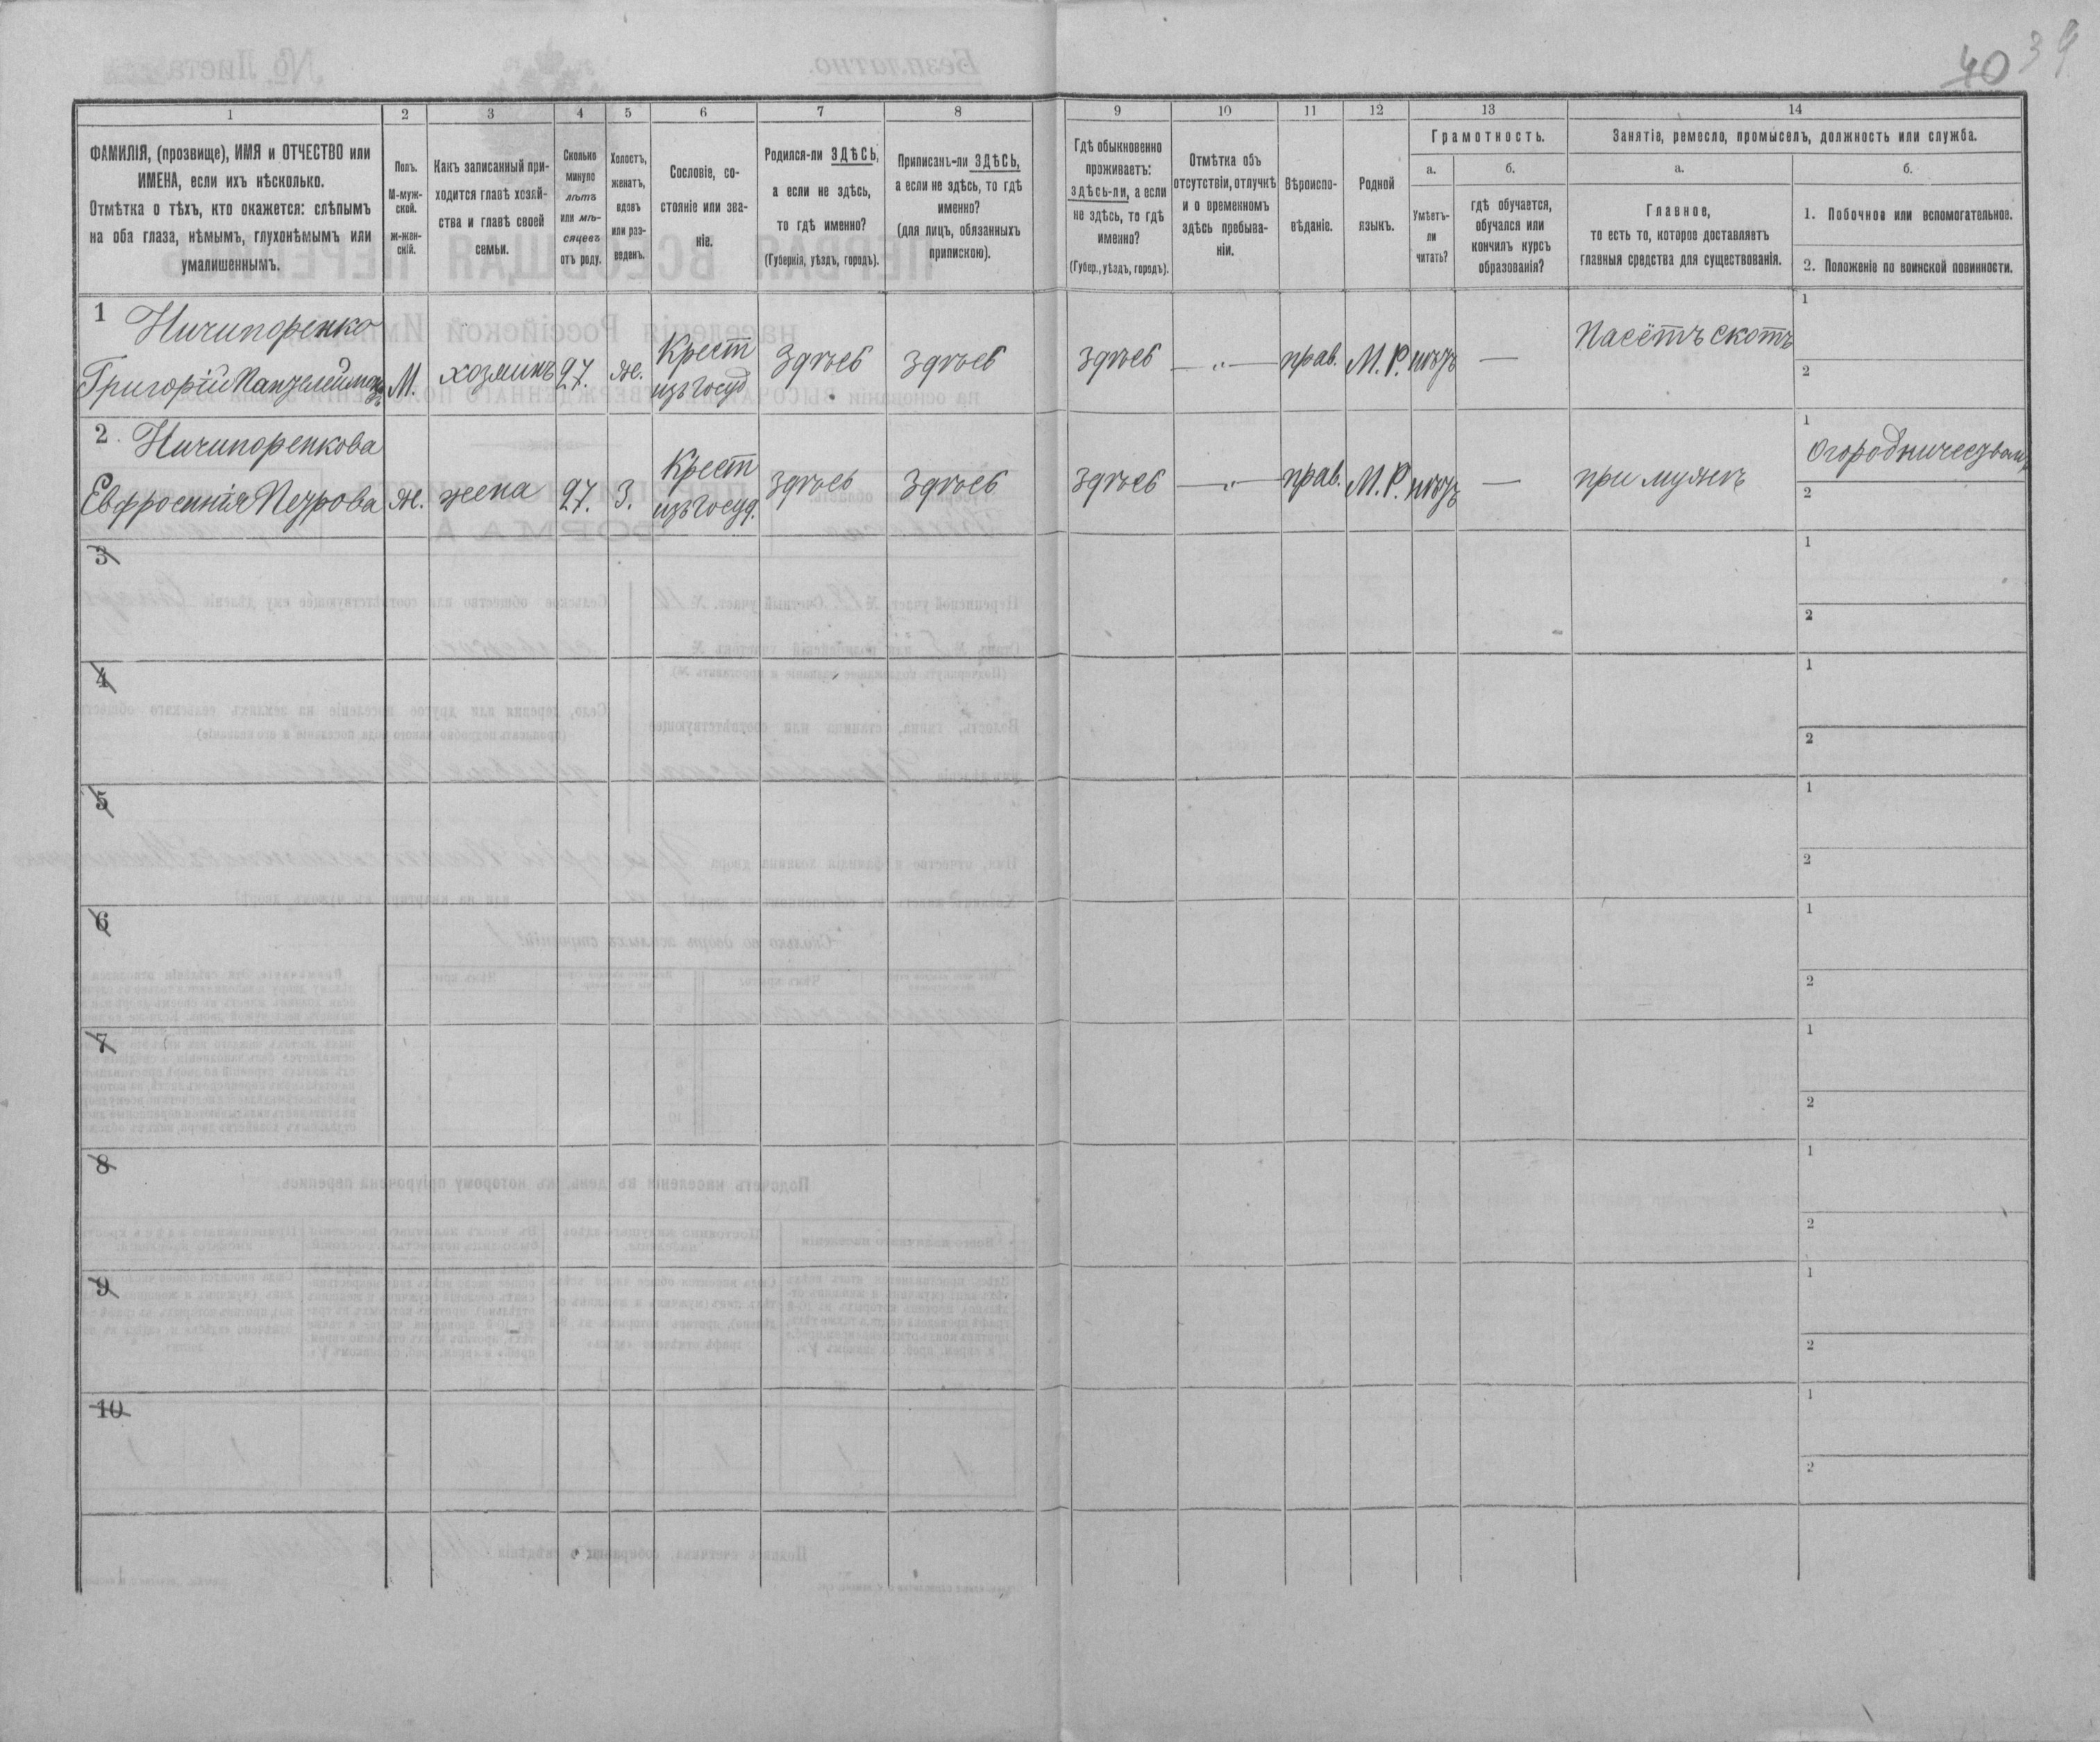 40 39
1
2
3
4
5
6
7
8
9
10
11
12
13
14
ФАМИЛІЯ, (прозвище), ИМЯ и ОТЧЕСТВО или
ИМЕНА, если ихъ нѣсколько.
Отмѣтка о тѣхъ, кто окажется: слѣпымъ
на оба глаза, нѣмымъ, глухонѣмымъ или
умалишеннымъ.
Полъ.
М-муж-
ской.
ж-жен-
скій.
Какъ записанный при-
ходится главѣ хозяй-
ства и главѣ своей
семьи.
Сколько
минуло
лѣтъ
или мѣ-
сяцевъ
отъ роду.
Холостъ,
женатъ,
вдовъ
или раз-
веденъ.
Сословіе, со-
стояніе или зва-
ніе.
Родился-ли ЗДѢСЬ,
а если не здѣсь,
то гдѣ именно?
(Губернія, уѣздъ, городъ).
Приписанъ-ли ЗДѢСЬ,
а если не здѣсь, то гдѣ
именно?
(для лицъ, обязанныхъ
припискою).
Гдѣ обыкновенно
проживаетъ:
здѣсь-ли, а если
не здѣсь, то гдѣ
именно?
(Губер., уѣздъ, городъ).
Отмѣтка объ
отсутствіи, отлучкѣ
и о временномъ
здѣсь пребыва-
ніи.
Вѣроиспо-
вѣданіе.
Родной
языкъ.
Грамотность.
а.
Умѣетъ-
ли
читать?
б.
гдѣ обучается,
обучался или
кончилъ курсъ
образованія?
Занятіе, ремесло, промыселъ, должность или служба.
а.
Главное,
то есть то, которое доставляетъ
главныя средства для существованія.
б.
1. Побочное или вспомогательное.
2. Положеніе по воинской повинности.
1 Ничипоренко
Григорій Пантелеймоновъ М. хозяинъ 27. ж. Крест изъ госуд здѣсь здѣсь здѣсь — „ — прав. М. Р. нѣтъ — Пасётъ скотъ
1
2
2. Ничипоренкова
Евфросинія Петрова ж. жена 27. З. Крест изъ госуд. здѣсь здѣсь здѣсь — „ — прав. М. Р. нѣтъ — при мужѣ
1
2
3
1
2
4
1
2
5
1
2
6
1
2
7
1
2
8
1
2
9
1
2
10
1
2